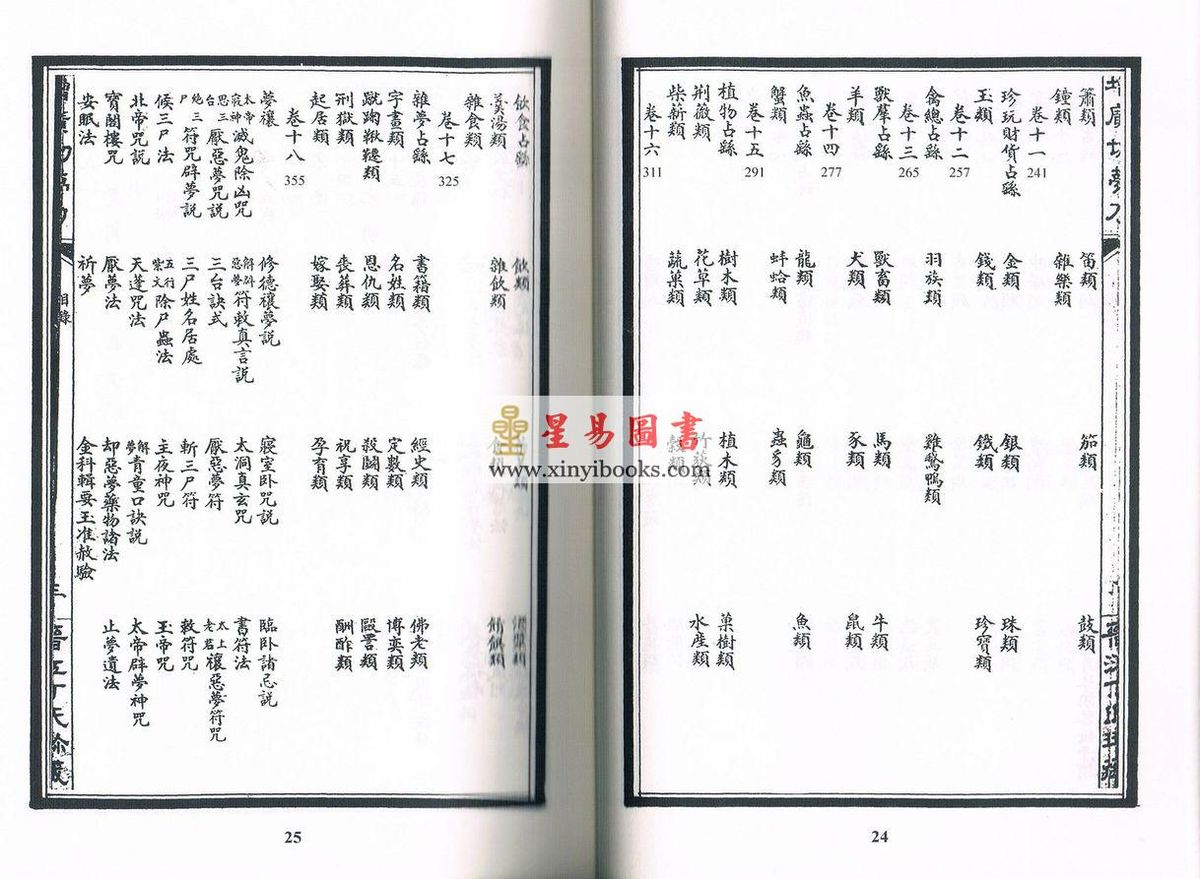 簫類 笛類 笳類 鼓類
鐘類 雜樂類
卷十一 241
珍玩財貨占繇 金類 銀類 珠類
玉類 錢類 鐵類 珍寶類
卷十二 257
禽總占繇 羽族類 雞鶩鴨類
卷十三 265
獸羣占繇 獸畜類 馬類 牛類
羊類 犬類 豕類 鼠類
卷十四 277
魚蟲占繇 龍類 龜類 魚類
蟹類 蚌蛤類 蟲豸類
卷十五 291
植物占繇 樹木類 植木類 菓樹類
荆薇類 花草類 竹 類 水産類
柴薪類 蔬菓類 穀類
卷十六 311
24
飲食占繇 飲類 酒漿類
羹湯類 雜飲類 餚饌類
雜食類
卷十七 325
雜夢占繇 書籍類 經史類 佛老類
字畫類 名姓類 定數類 博奕類
蹴踘鞦韆類 恩仇類 殺鬭類 毆詈類
刑獄類 喪葬類 祝享類 酬酢類
起居類 嫁娶類 孕育類
卷十八 355
夢禳 修德禳夢説 寢室臥咒説 臨臥諸忌説
太帝寢神滅鬼除凶咒 解辟惡夢符敕真言説 太洞真玄咒 書符法
思三台厭惡夢咒説 三台訣式 厭惡夢符 太上老君禳惡夢符咒
絶三尸符咒辟夢説 三尸姓名居處 斬三尸符 敕符咒
候三尸法 五行紫文除尸蟲法 主夜神咒 玉帝咒
北帝咒説 天蓬咒法 解夢青童口訣説 太帝辟夢神咒
寶閣樓咒 厭夢法 却惡夢藥物諸法 止夢遺法
安眠法 祈夢 金科輯要玉准赦驗
目錄
25
星易圖書
www.xinyibooks.com